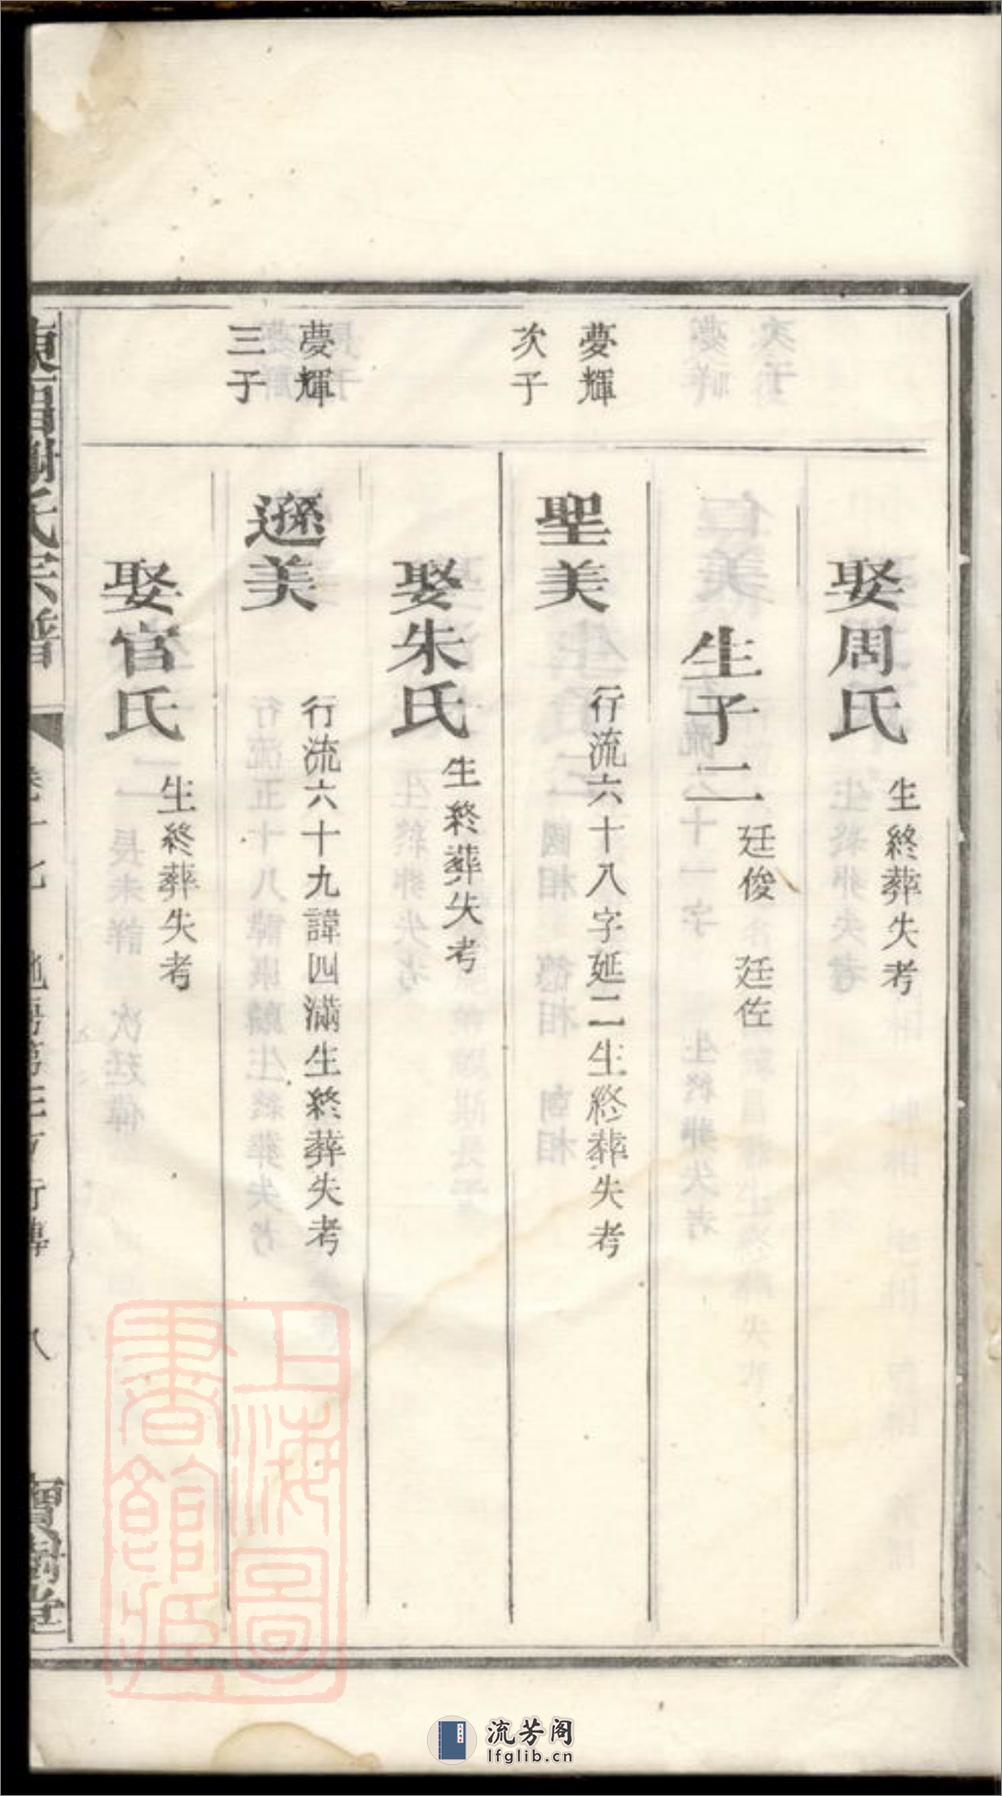 娶周氏 生終葬失考
生子二 廷俊 廷佐
夢輝次子
聖美 行流六十八字延二生終葬失考
娶朱氏 生終葬失考
夢輝三子
遜美 行流六十九諱四滿生終葬失考
娶官氏 生終葬失考
謝氏宗譜
八
寶樹堂
上海圖書館藏
流芳阁
lfglib.cn